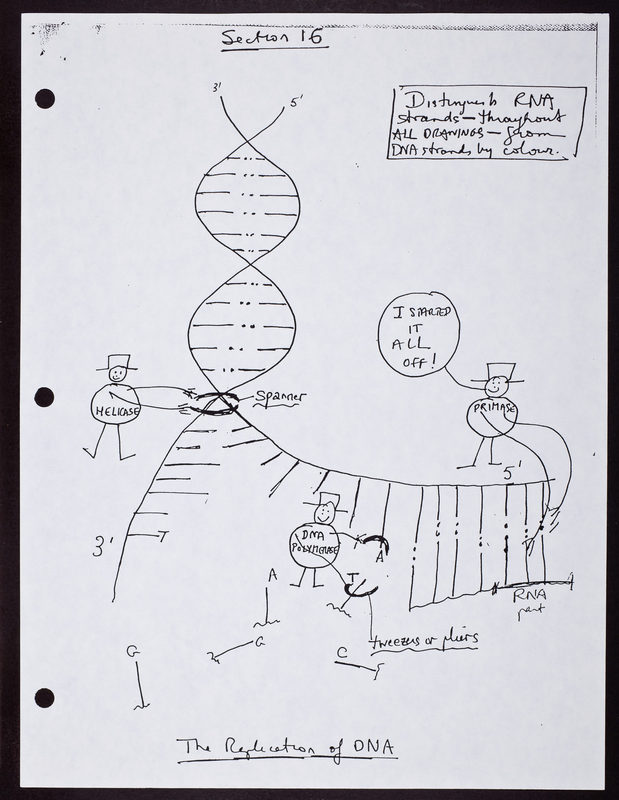 Section 16
3'
5'
Distinguish RNA
strands — throughout
ALL DRAWINGS — from
DNA strands by colour.
I STARTED
IT
ALL
OFF!
HELICASE
Spanner
PRIMASE
5'
3'
T
DNA
POLYMERASE
A
T
A
RNA
part
tweezers or pliers
G
G
C
The Replication of DNA